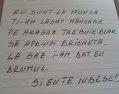 EU SUNT LA MUNCĂ.
TI-AM LĂSAT MÂNCARE
PE ARAGAZ. TREBUIE DOAR
SĂ APRINZI BRICHETA.
LA GAZ I-AM DAT EU
DRUMUL.
SI EU TE IUBESC!